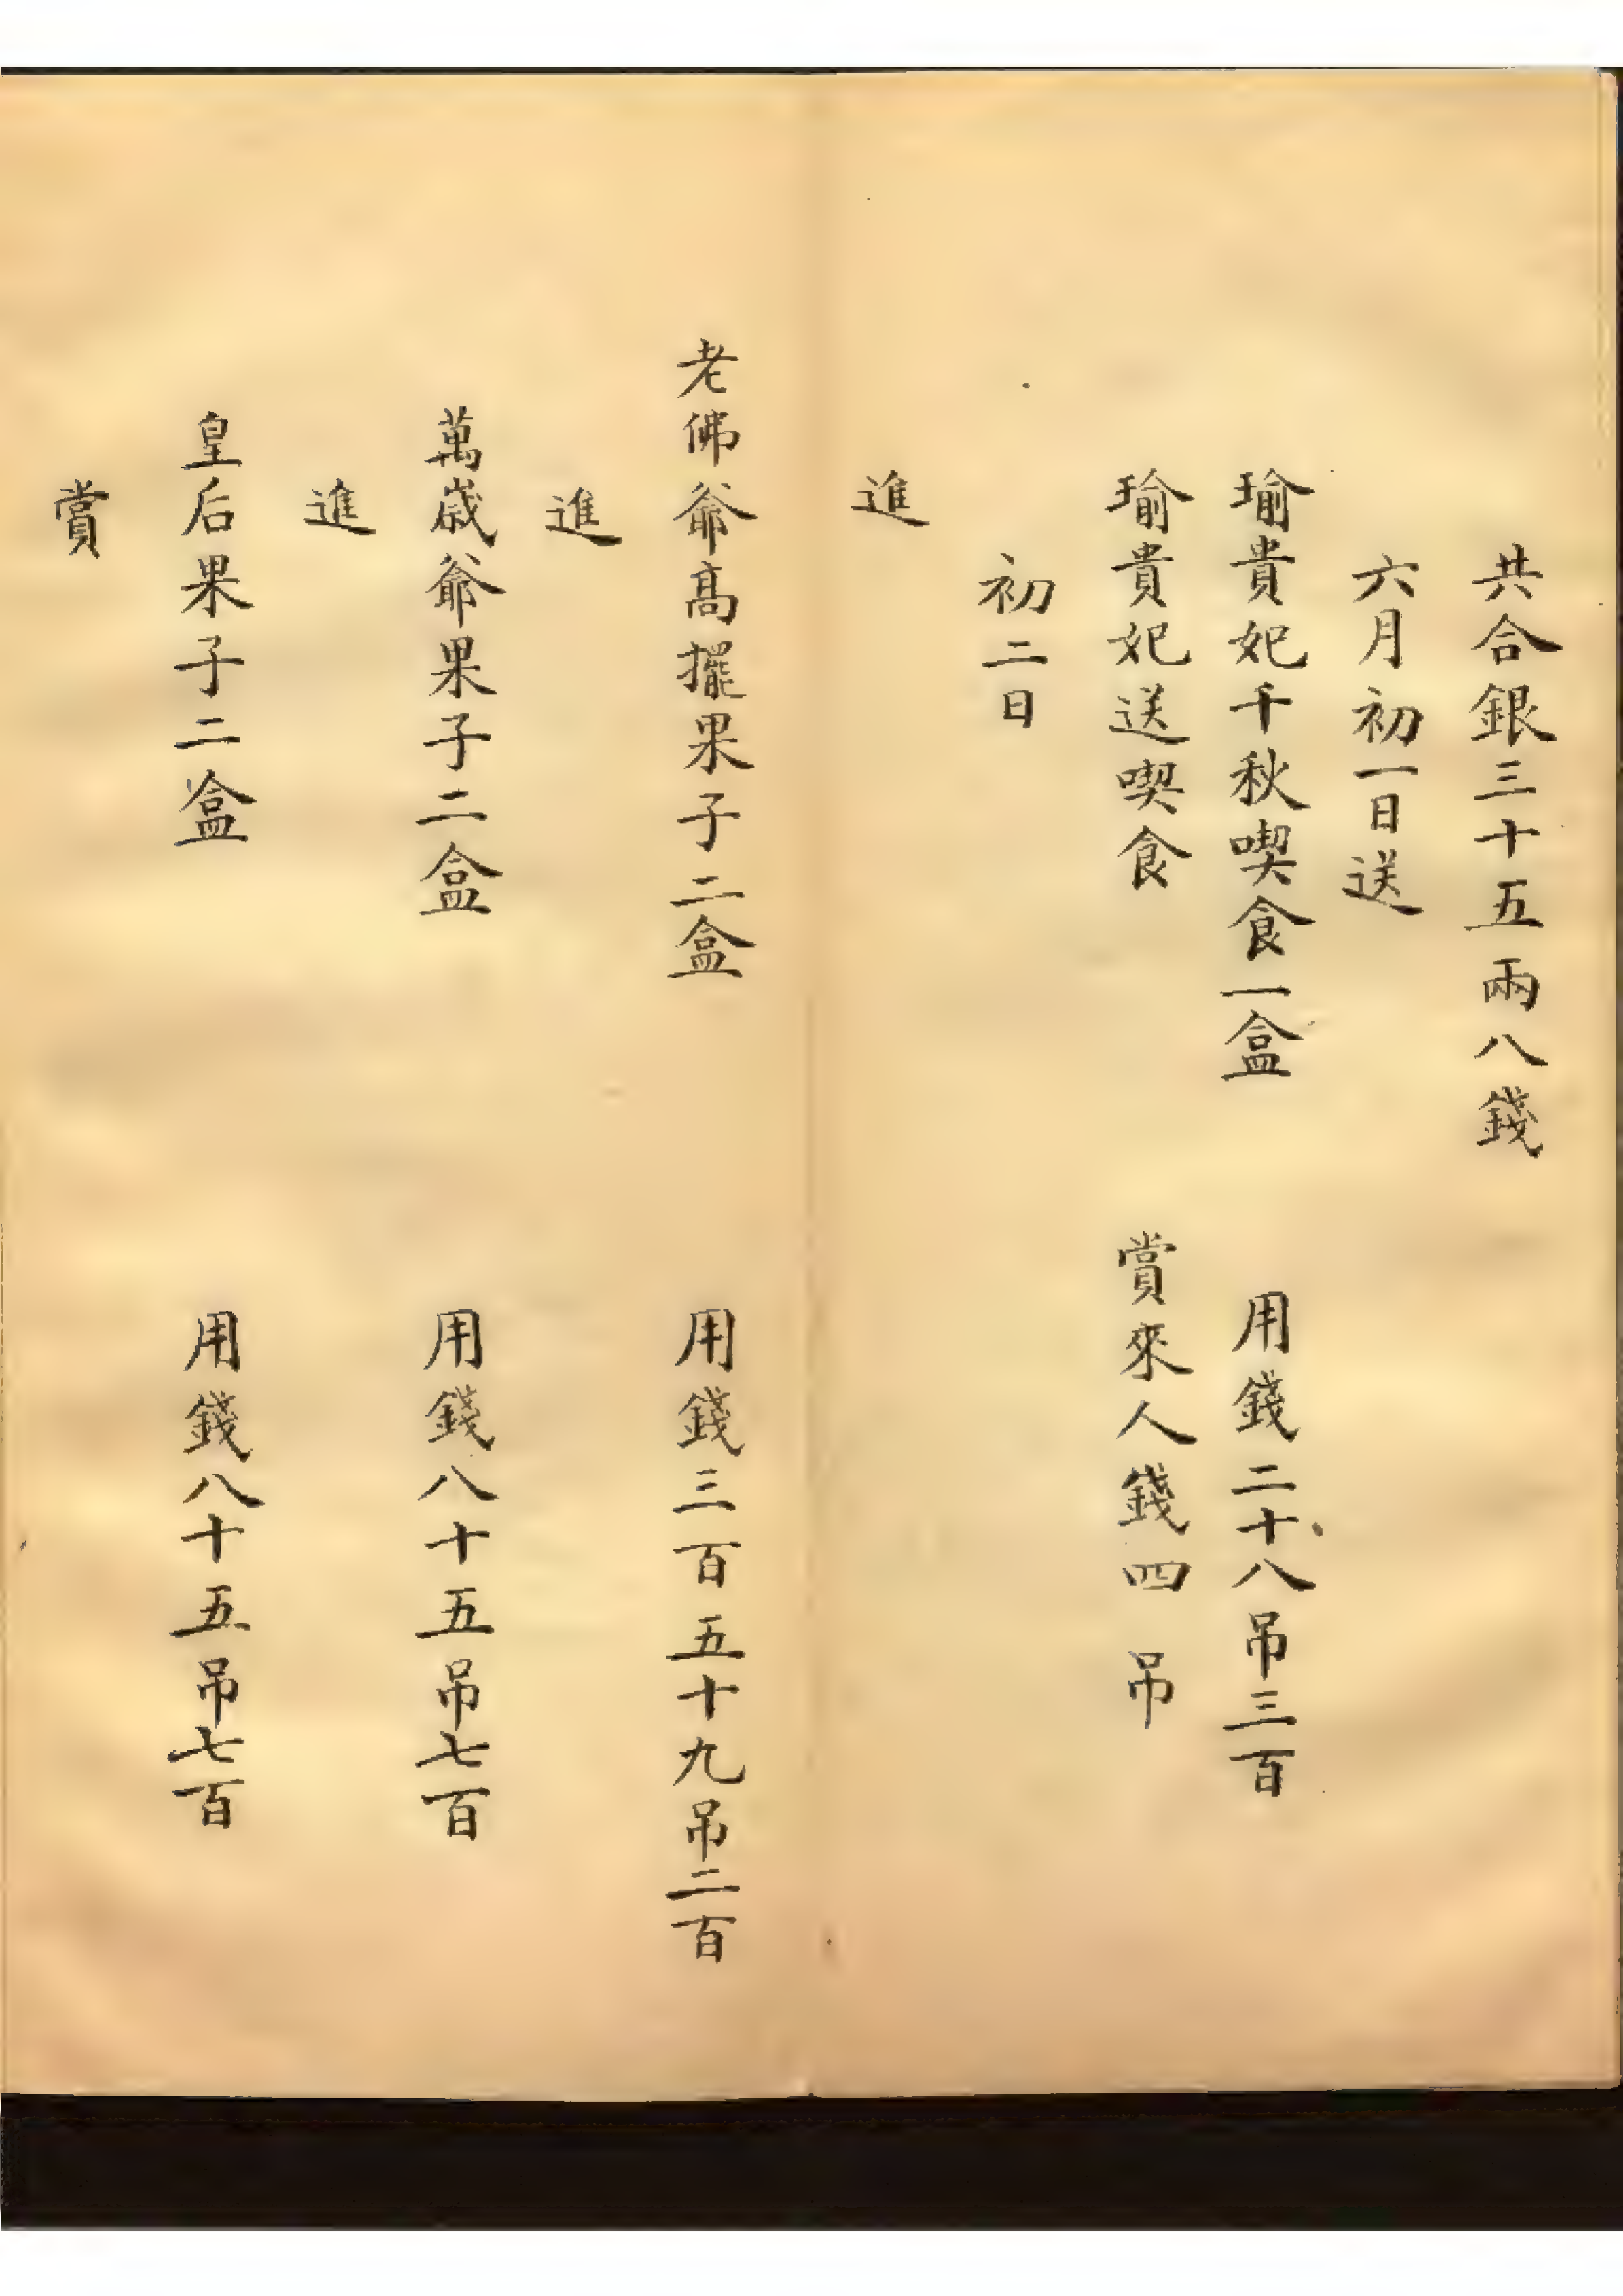 共合銀三十五兩八錢
六月初一日送
瑜貴妃千秋喫食一盒　用錢二十八吊三百
瑜貴妃送喫食　賞來人錢四吊
初二日
進
老佛爺高擺果子二盒　用錢三百五十九吊二百
進
萬歲爺果子二盒　用錢八十五吊七百
進
皇后果子二盒　用錢八十五吊七百
賞